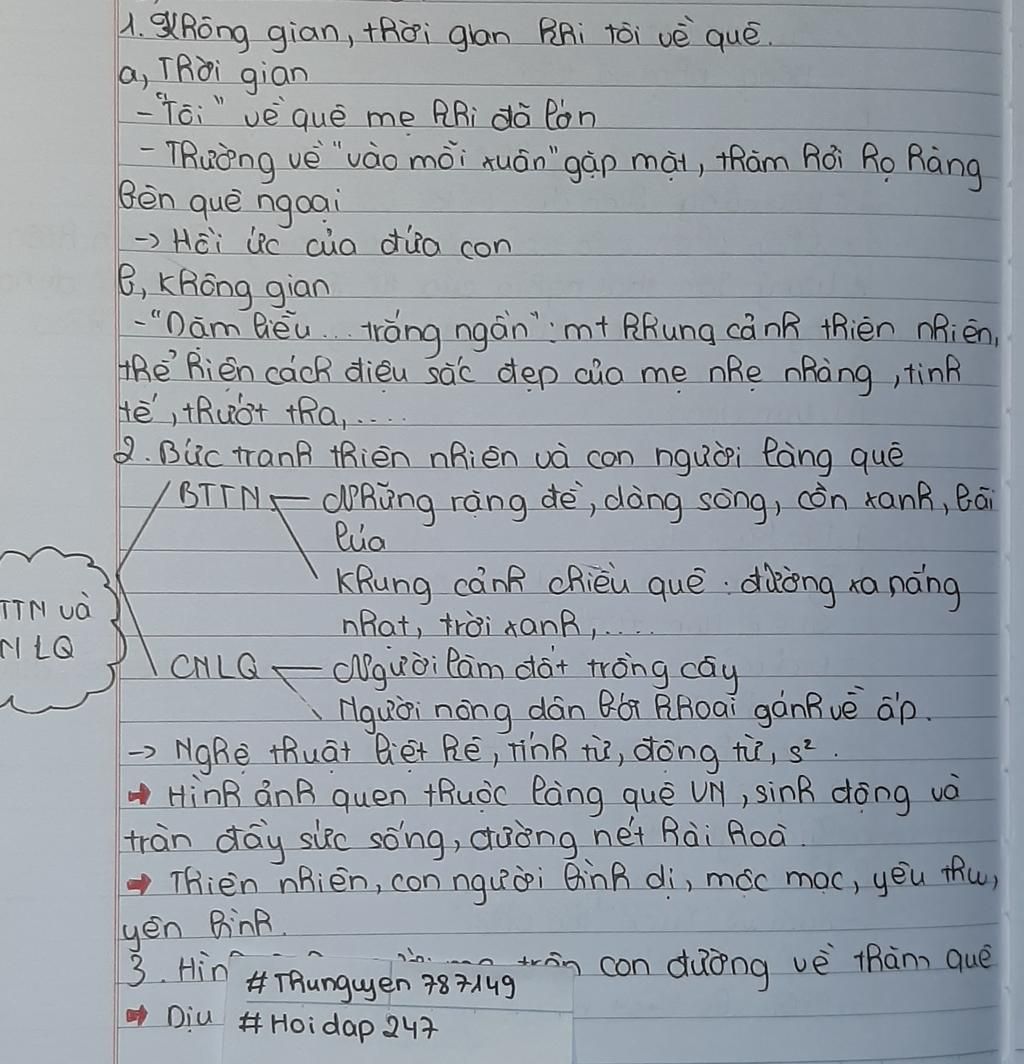 1. Không gian, thời gian khi tôi về quê.
a, Thời gian
- "Tôi" về quê mẹ khi đã lớn
- Thường về "vào mỗi xuân" gặp mặt, thăm hỏi họ hàng
bên quê ngoại
-> Hồi ức của đứa con
b, Không gian
- "Dăm liễu... trắng ngần": mt khung cảnh thiên nhiên,
thể hiện cách điệu sắc đẹp của mẹ nhẹ nhàng, tinh
tế, thướt tha,....
2. Bức tranh thiên nhiên và con người làng quê
BTTN — Những rặng đề, dòng sông, cồn xanh, bãi
lúa
Khung cảnh chiều quê: đường xa nắng
nhạt, trời xanh,....
TTN và
N LQ
CNLQ — Người làm đất trồng cây
Người nông dân bới khoai gánh về ấp.
-> Nghệ thuật liệt kê, tính từ, động từ, s².
➡ Hình ảnh quen thuộc làng quê VN, sinh động và
tràn đầy sức sống, đường nét hài hoà.
➡ Thiên nhiên, con người bình dị, mộc mạc, yêu thw,
yên bình.
3. Hìn trên con đường về thăm quê
➡ Dịu
#Thunguyen787149
#Hoidap247